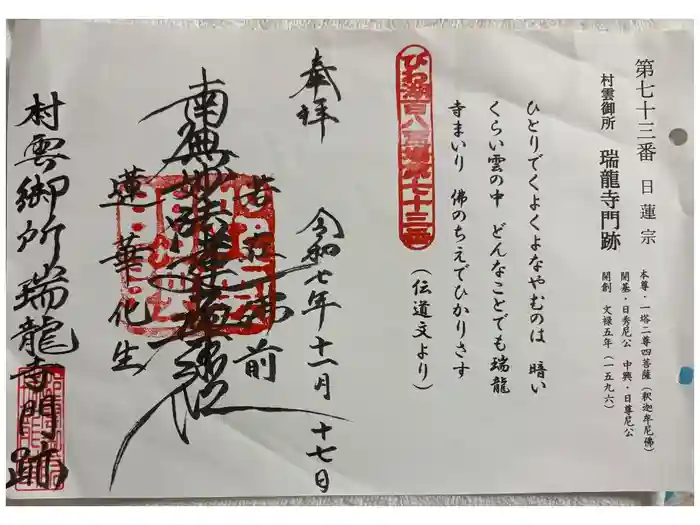 第七十三番 日蓮宗
村雲御所 瑞龍寺門跡
本尊・一塔二尊四菩薩(釈迦牟尼佛)
開基・日秀尼公 中興・日尊尼公
開創 文禄五年(一五九六)
ひとりでくよくよなやむのは 暗い
くらい雲の中 どんなことでも瑞龍
寺まいり 佛のちえでひかりさす
(伝道文より)
びわ湖百八霊場第七十三番
奉拝
令和七年十一月十七日
若在佛前
南無妙法蓮華経
蓮華化生
村雲御所瑞龍寺門跡